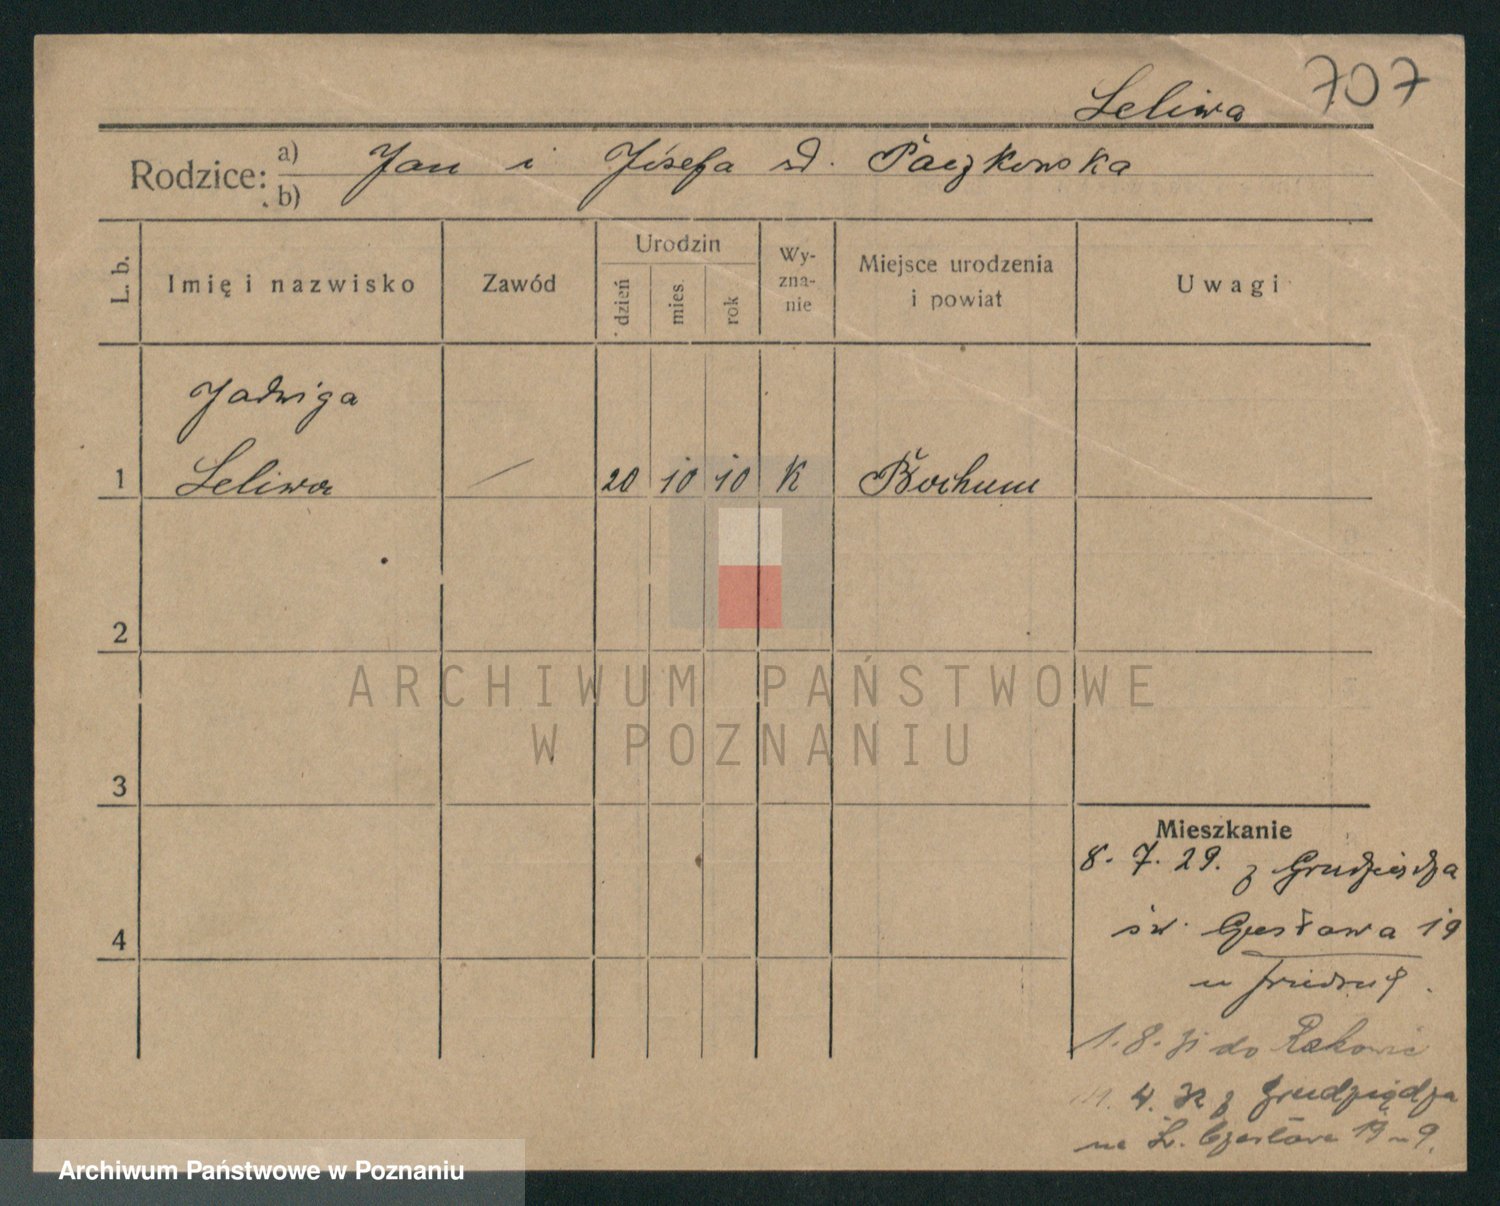 707
Leliwa
Rodzice: a) b) Jan i Józefa zd. Paczkowska
L. b. Imię i nazwisko Zawód Urodzin dzień mies. rok Wy-zna-nie Miejsce urodzenia i powiat Uwagi
Jadwiga
1 Leliwa — 20 10 10 K Bochum
2
ARCHIWUM PAŃSTWOWE
W POZNANIU
3
Mieszkanie
8. 7. 29. z Grudziądza
św. Czesława 19
4
1. 8. 31 do
4. 32 z Grudziądza
na Św. Czesława 19 m 9.
Archiwum Państwowe w Poznaniu